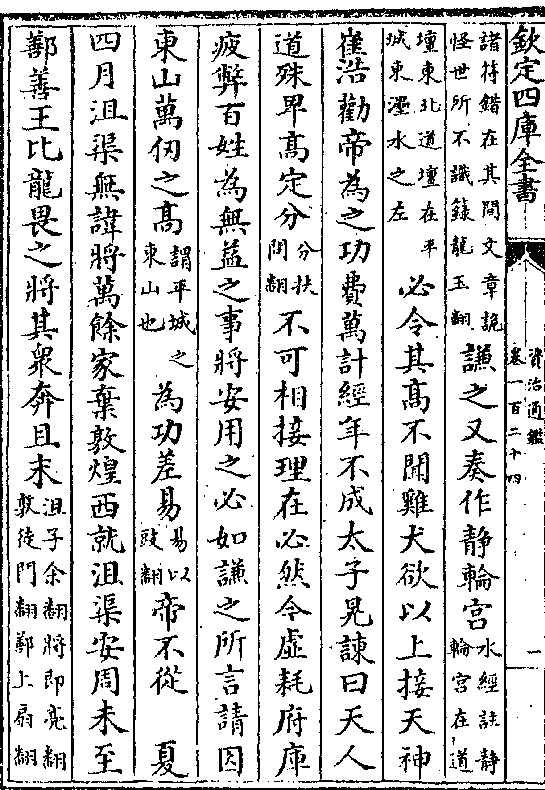 欽定四庫全書
資治通鑑
卷一百二十四
一
諸符錯在其間文章詭
怪世所不識籙龍玉翻
謙之又奏作靜輪宮
水經註靜
輪宮在道
壇東北道壇在平
城東㶟水之左
必令其高不聞雞犬欲以上接天神
崔浩勸帝為之功費萬計經年不成太子晃諫曰天人
道殊卑高定分
分扶
問翻
不可相接理在必然今虛耗府庫
疲弊百姓為無益之事將安用之必如謙之所言請因
東山萬仞之高
謂平城之
東山也
為功差易
易以
豉翻
帝不從
夏
四月沮渠無諱將萬餘家棄敦煌西就沮渠安周未至
鄯善王比龍畏之將其衆奔且末
沮子余翻將即亮翻
敦徒門翻鄯上扇翻